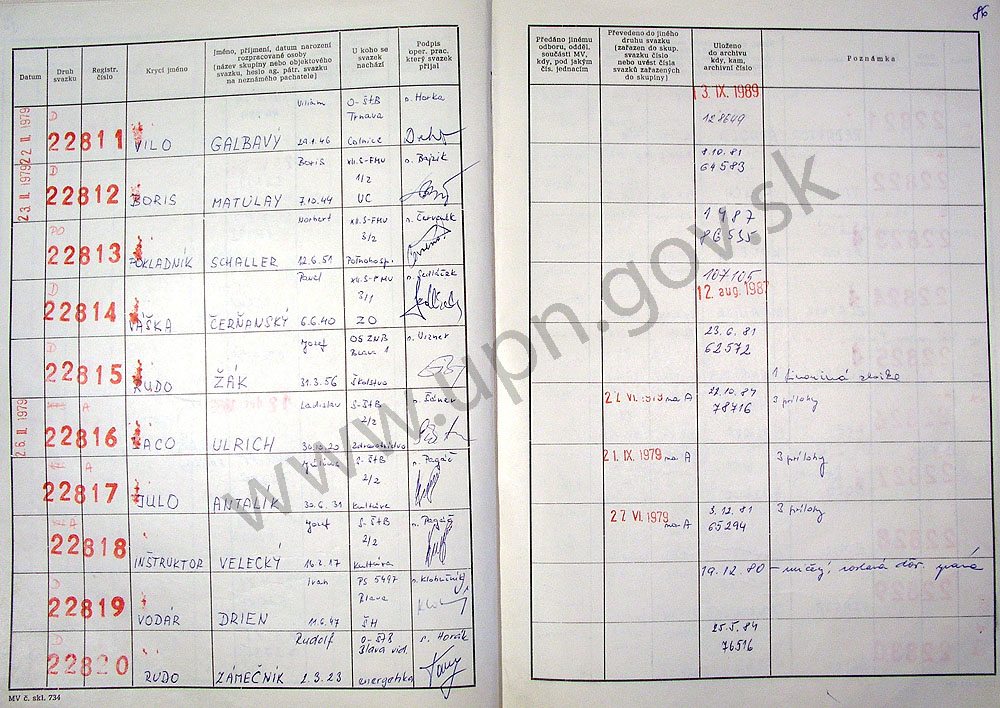 86
Datum
Druh svazku
Registr. číslo
Krycí jméno
Jméno, příjmení, datum narození rozpracované osoby
(název skupiny nebo objektového svazku, heslo ag. pátr. svazku na neznámého pachatele)
U koho se svazek nachází
Podpis oper. prac. který svazek přijal
Předáno jinému odboru, odděl. součásti MV, kdy, pod jakým čís. jednacím
Převedeno do jiného druhu svazku (zařazen do skup. svazku číslo nebo uvést čísla svazků zařazených do skupiny)
Uloženo do archivu kdy, kam, archivní číslo
Poznámka
22. II. 1979 D 22811 VILO GALBAVÝ Viliam O-ŠtB Trnava n. Horka
13. IX. 1989
23. II. 1979 D 22812 BORIS MATULAY Boris 7.10.44 XII.S-FMV 1/2 VC n. Bajzik
1.10.81 64583
PO 22813 POKLADNÍK SCHALLER Norbert 12.6.51 XII.S-FMV 3/2
1987
D 22814 VÁŠKA ČERŇANSKÝ Pavel 6.6.40 XII.S-FMV 3/1 ZO n. Sedláček
107105 12. aug. 1987
D 22815 RUDO ŽÁK Jozef 31.3.56 OS ZNB školstvo n. Vizner
23.6.81 62572
26. II. 1979 A 22816 LACO ULRICH Ladislav 30.10.20 S-ŠtB 2/2 Zdravotníctvo
na A 22.10.84 78716 3 prílohy
A 22817 JULO ANTALÍK 30.6.31 S-ŠtB 2/2 kultúra n. Pagáč
21. IX. 1979 na A 3 prílohy
A 22818 INŠTRUKTOR VELECKÝ Jozef S-ŠtB 2/2 kultúra n. Pagáč
27. VI. 1979 na A 3.12.81 65294 3 prílohy
D 22819 VODÁR DRIEN Ivan 11.6.47 PS 5497 Blava ŠH n. Klobučník
19.12.80
D 22820 RUDO ZÁMEČNÍK Rudolf 2.3.23 O-ŠtB Blava vid. energetika n. Horák
25.5.84 76516
MV č. skl. 734
www.upn.gov.sk